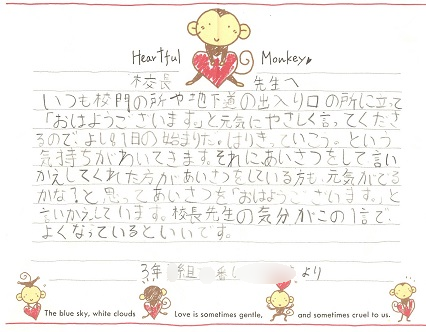 Heartful Monkey
校長 先生へ
いつも校門の所や地下道の出入り口の所に立って
「おはようございます」と元気にやさしく言ってくださ
るので、よし今日1日の始まりだ。はりきっていこう。という
気持ちがわいてきます。それにあいさつをして言い
かえしてくれた方があいさつをしている方も、元気がでる
かな？と思ってあいさつを「おはようございます。」と
言いかえしています。校長先生の気分がこの1言で、
よくなっているといいです。
3年 組 番 より
The blue sky, white clouds Love is sometimes gentle, and sometimes cruel to us.